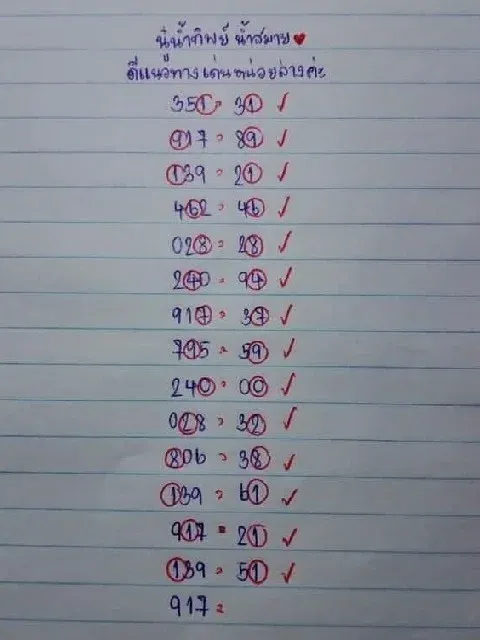 นู๋น้ำทิพย์ น้ำสมาย
ดีแนวทางเด่นหน่อยล่างค่ะ
351 = 31 ✓
917 = 89 ✓
139 = 21 ✓
462 = 46 ✓
028 = 28 ✓
240 = 94 ✓
917 = 37 ✓
795 = 59 ✓
240 = 00 ✓
028 = 32 ✓
806 = 38 ✓
139 = 61 ✓
917 = 21 ✓
139 = 51 ✓
917 =